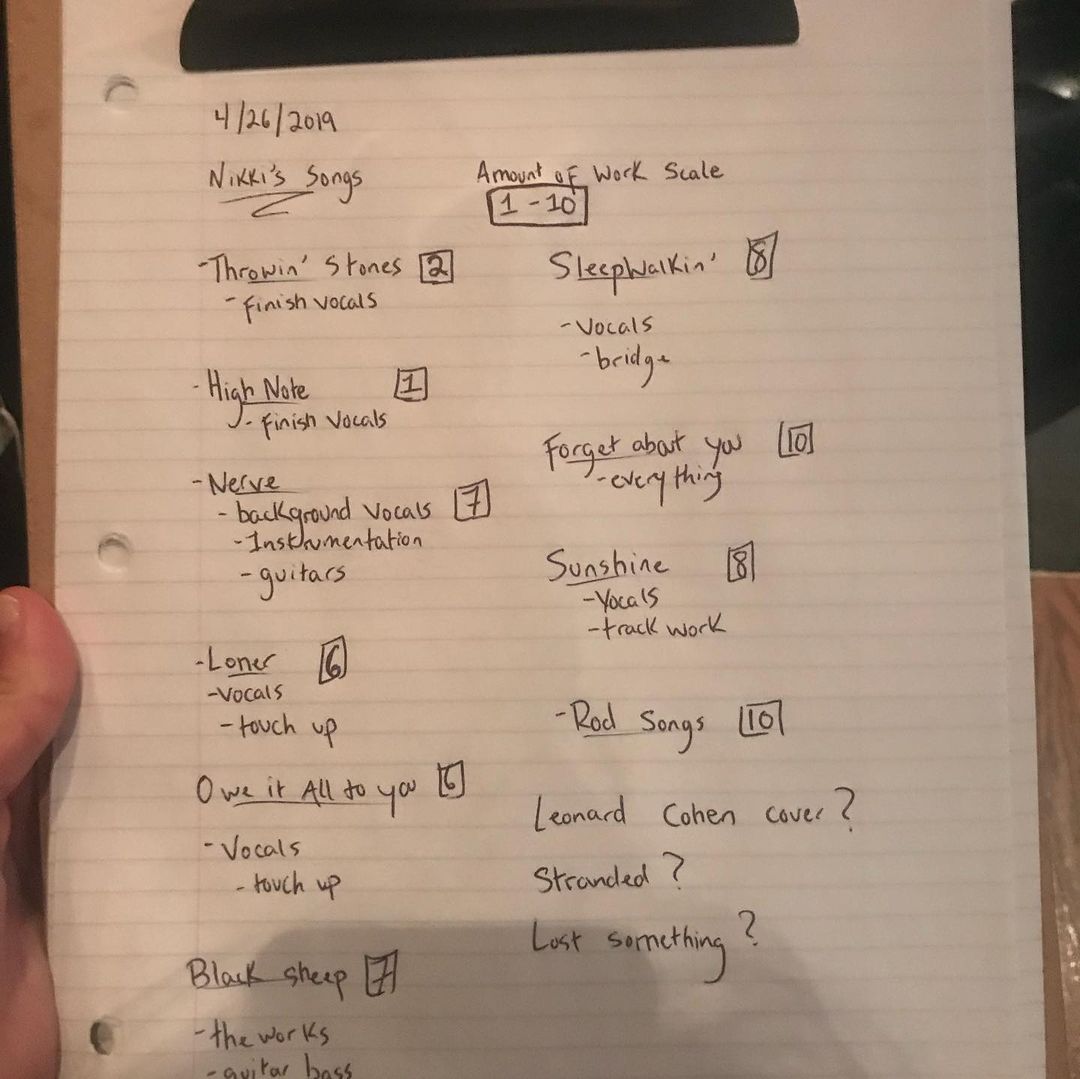 4/26/2019
Nikki's Songs
Amount of Work Scale
1 - 10
-Throwin' Stones 2
- finish vocals
- High Note 1
- finish vocals
- Nerve
- background vocals 7
- Instrumentation
- guitars
- Loner 6
- vocals
- touch up
Owe it All to you 6
- Vocals
- touch up
Black sheep 7
- the works
- guitar bass
SleepWalkin' 8
- Vocals
- bridge
Forget about you 10
- everything
Sunshine 8
- Vocals
- track work
- Rod Songs 10
Leonard Cohen cover?
Stranded?
Lost something?